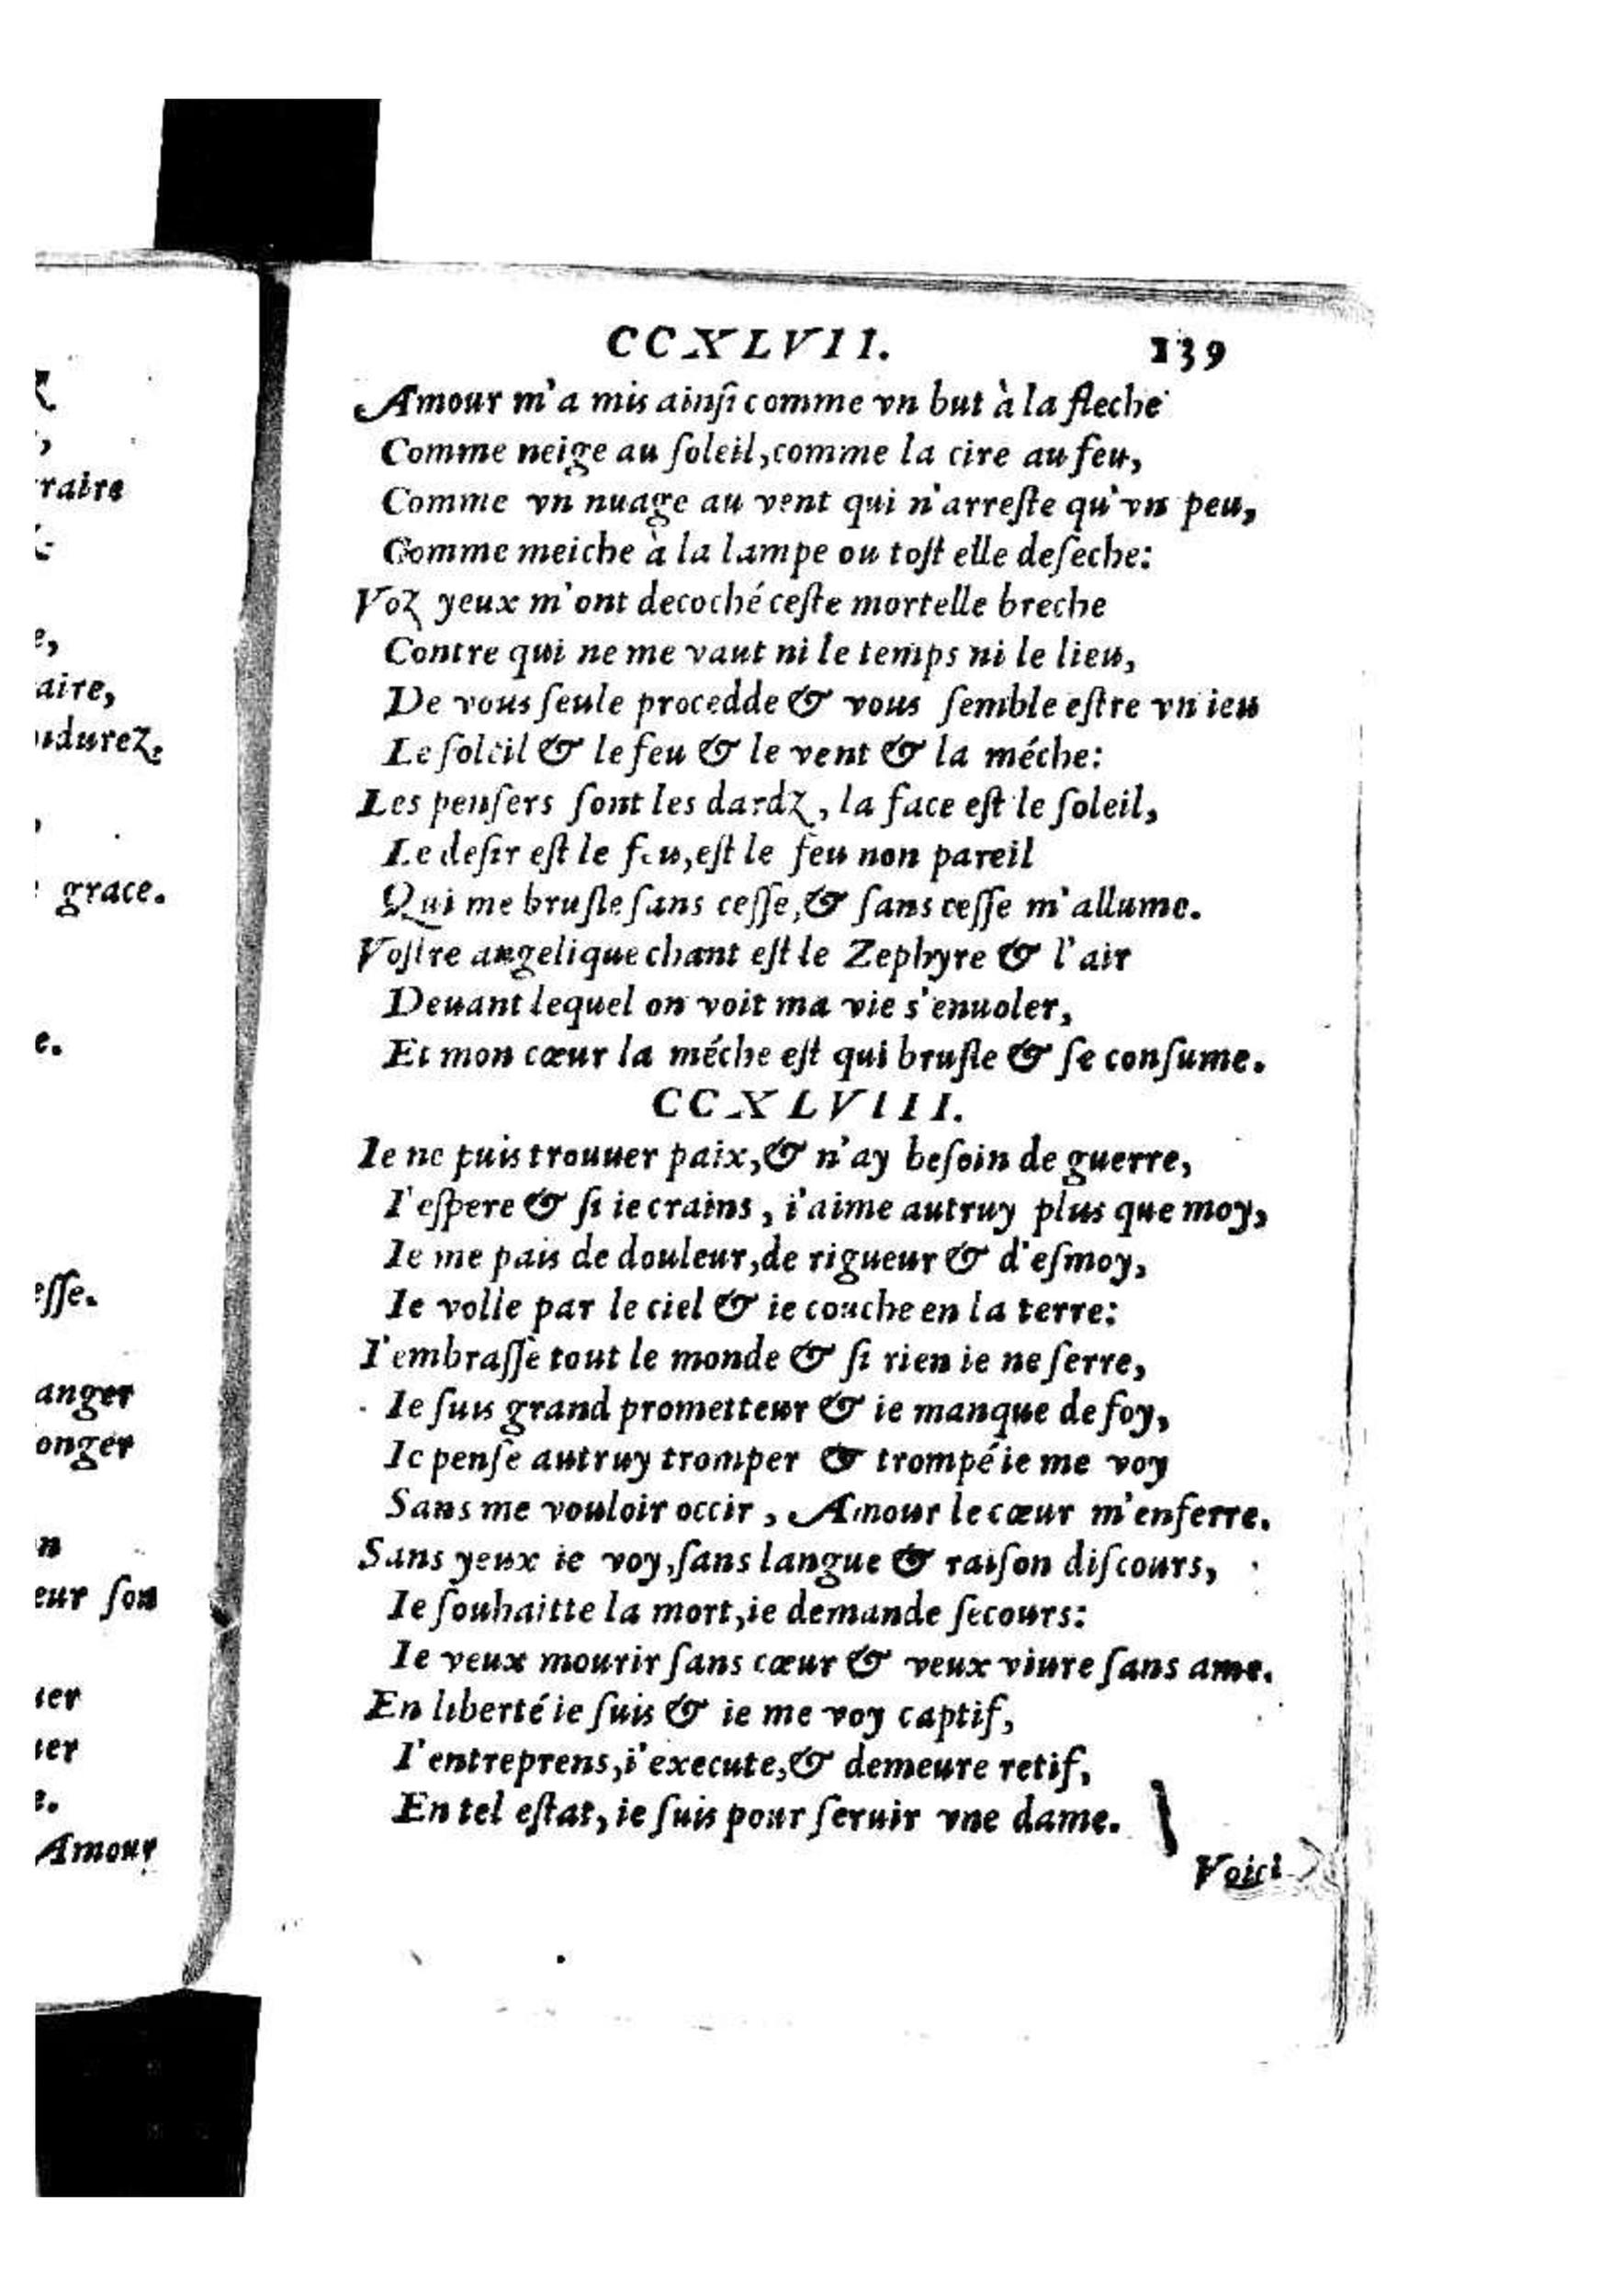 CCXLVII. 139
Amour m'a mis ainſi comme vn but à la fleche
Comme neige au ſoleil, comme la cire au feu,
Comme vn nuage au vent qui n'arreſte qu'vn peu,
Comme meiche à la lampe ou toſt elle deſeche:
Voz yeux m'ont decoché ceſte mortelle breche
Contre qui ne me vaut ni le temps ni le lieu,
De vous ſeule procedde & vous ſemble eſtre vn ieu
Le ſoleil & le feu & le vent & la méche:
Les penſers ſont les dardz, la face eſt le ſoleil,
Le deſir eſt le feu, eſt le feu non pareil
Qui me bruſle ſans ceſſe, & ſans ceſſe m'allume.
Voſtre angelique chant eſt le Zephyre & l'air
Deuant lequel on voit ma vie s'enuoler,
Et mon cœur la méche eſt qui bruſle & ſe conſume.
CCXLVIII.
Ie ne puis trouuer paix, & n'ay beſoin de guerre,
I'eſpere & ſi ie crains, i'aime autruy plus que moy,
Ie me pais de douleur, de rigueur & d'eſmoy,
Ie volle par le ciel & ie couche en la terre:
I'embraſſe tout le monde & ſi rien ie ne ſerre,
Ie ſuis grand prometteur & ie manque de foy,
Ie penſe autruy tromper & trompé ie me voy
Sans me vouloir occir, Amour le cœur m'enferre.
Sans yeux ie voy, ſans langue & raiſon diſcours,
Ie ſouhaitte la mort, ie demande ſecours:
Ie veux mourir ſans cœur & veux viure ſans ame.
En liberté ie ſuis & ie me voy captif,
I'entreprens, i'execute, & demeure retif,
En tel eſtat, ie ſuis pour ſeruir vne dame.
Voici
raire
aire,
udurez.
grace.
e.
eſſe.
anger
onger
n
eur ſon
ier
ier
e.
Amour